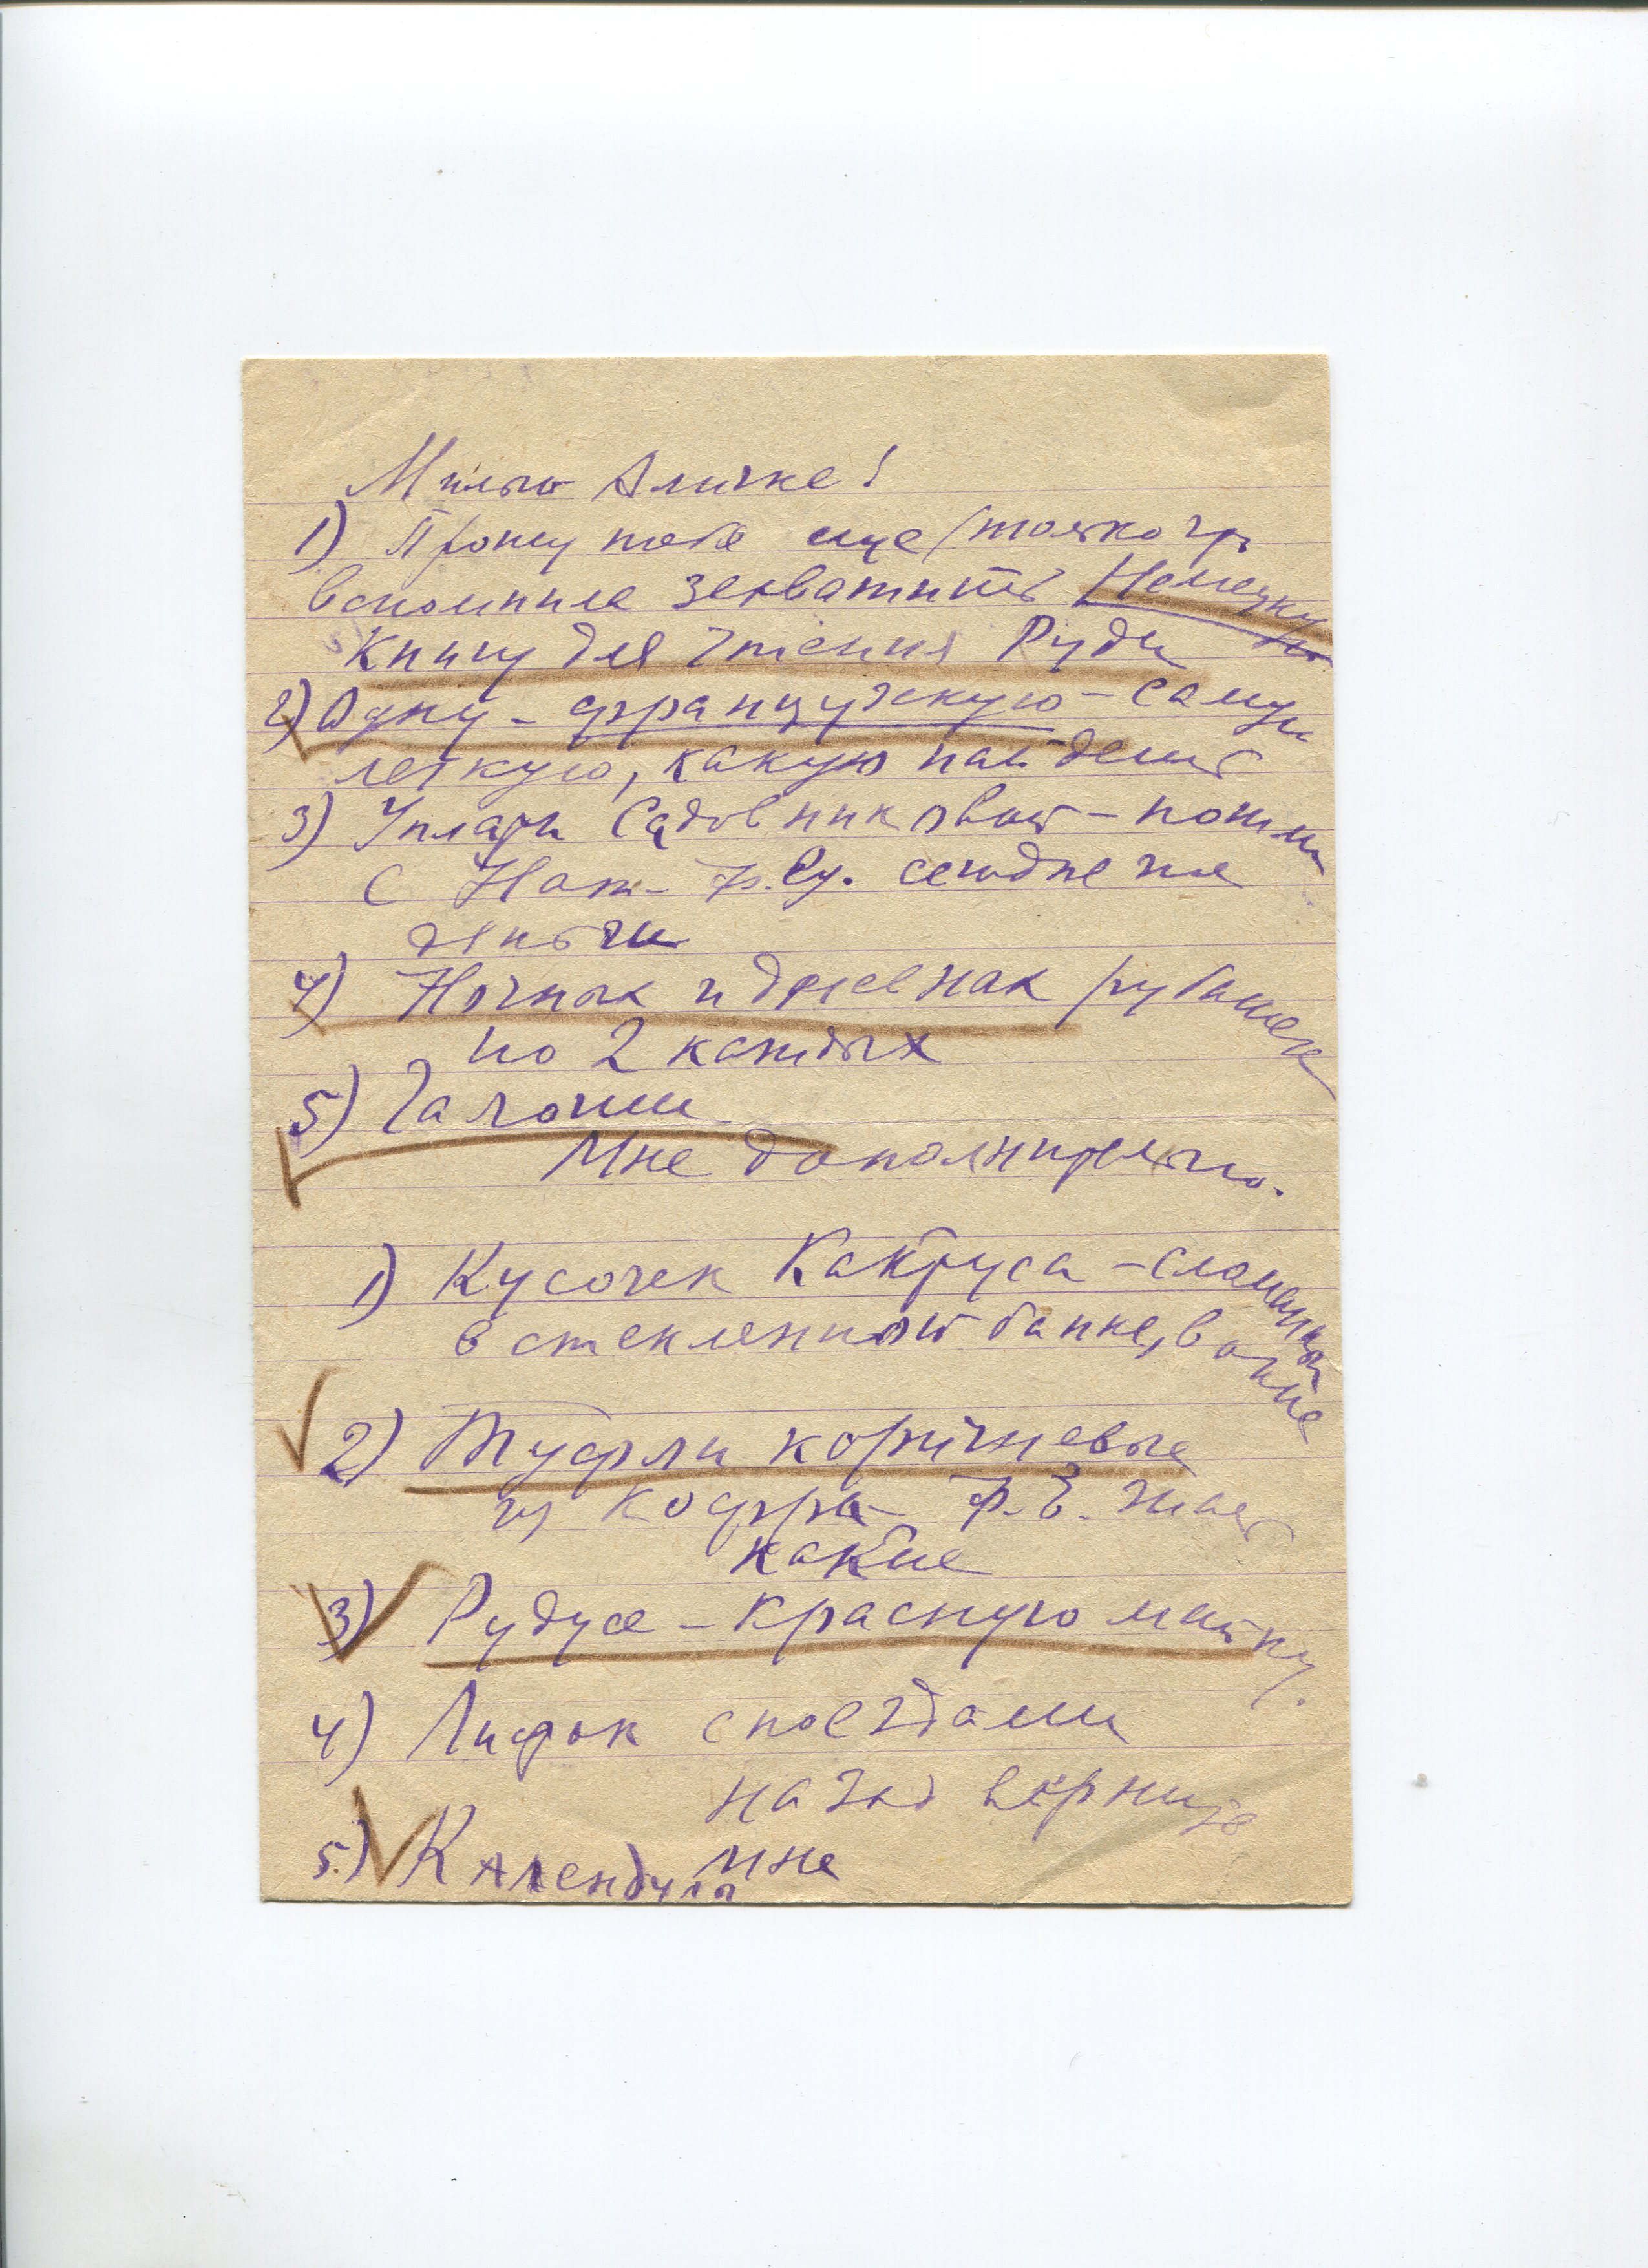 Милый Аличке!
1) Прошу тебя еще (только что
вспомнила захватить Немецкую
книгу для чтения Руди
2) Одну - французскую - самую
легкую, какую найдешь
3) Уплати Садовниковой -
С сегодня же
деньги
4) Ночных и дневных рубашек
по 2 каждых
5) Галоши
Мне дополнительно.
1) Кусочек Кактуса - сломанный
в стеклянной банке, в окне
2) Туфли коричневые
из кофра Ф.Е. знает
какие
3) Рудусе - красную майку.
4) Листок с поездами
назад верните
мне
5.) Календулы